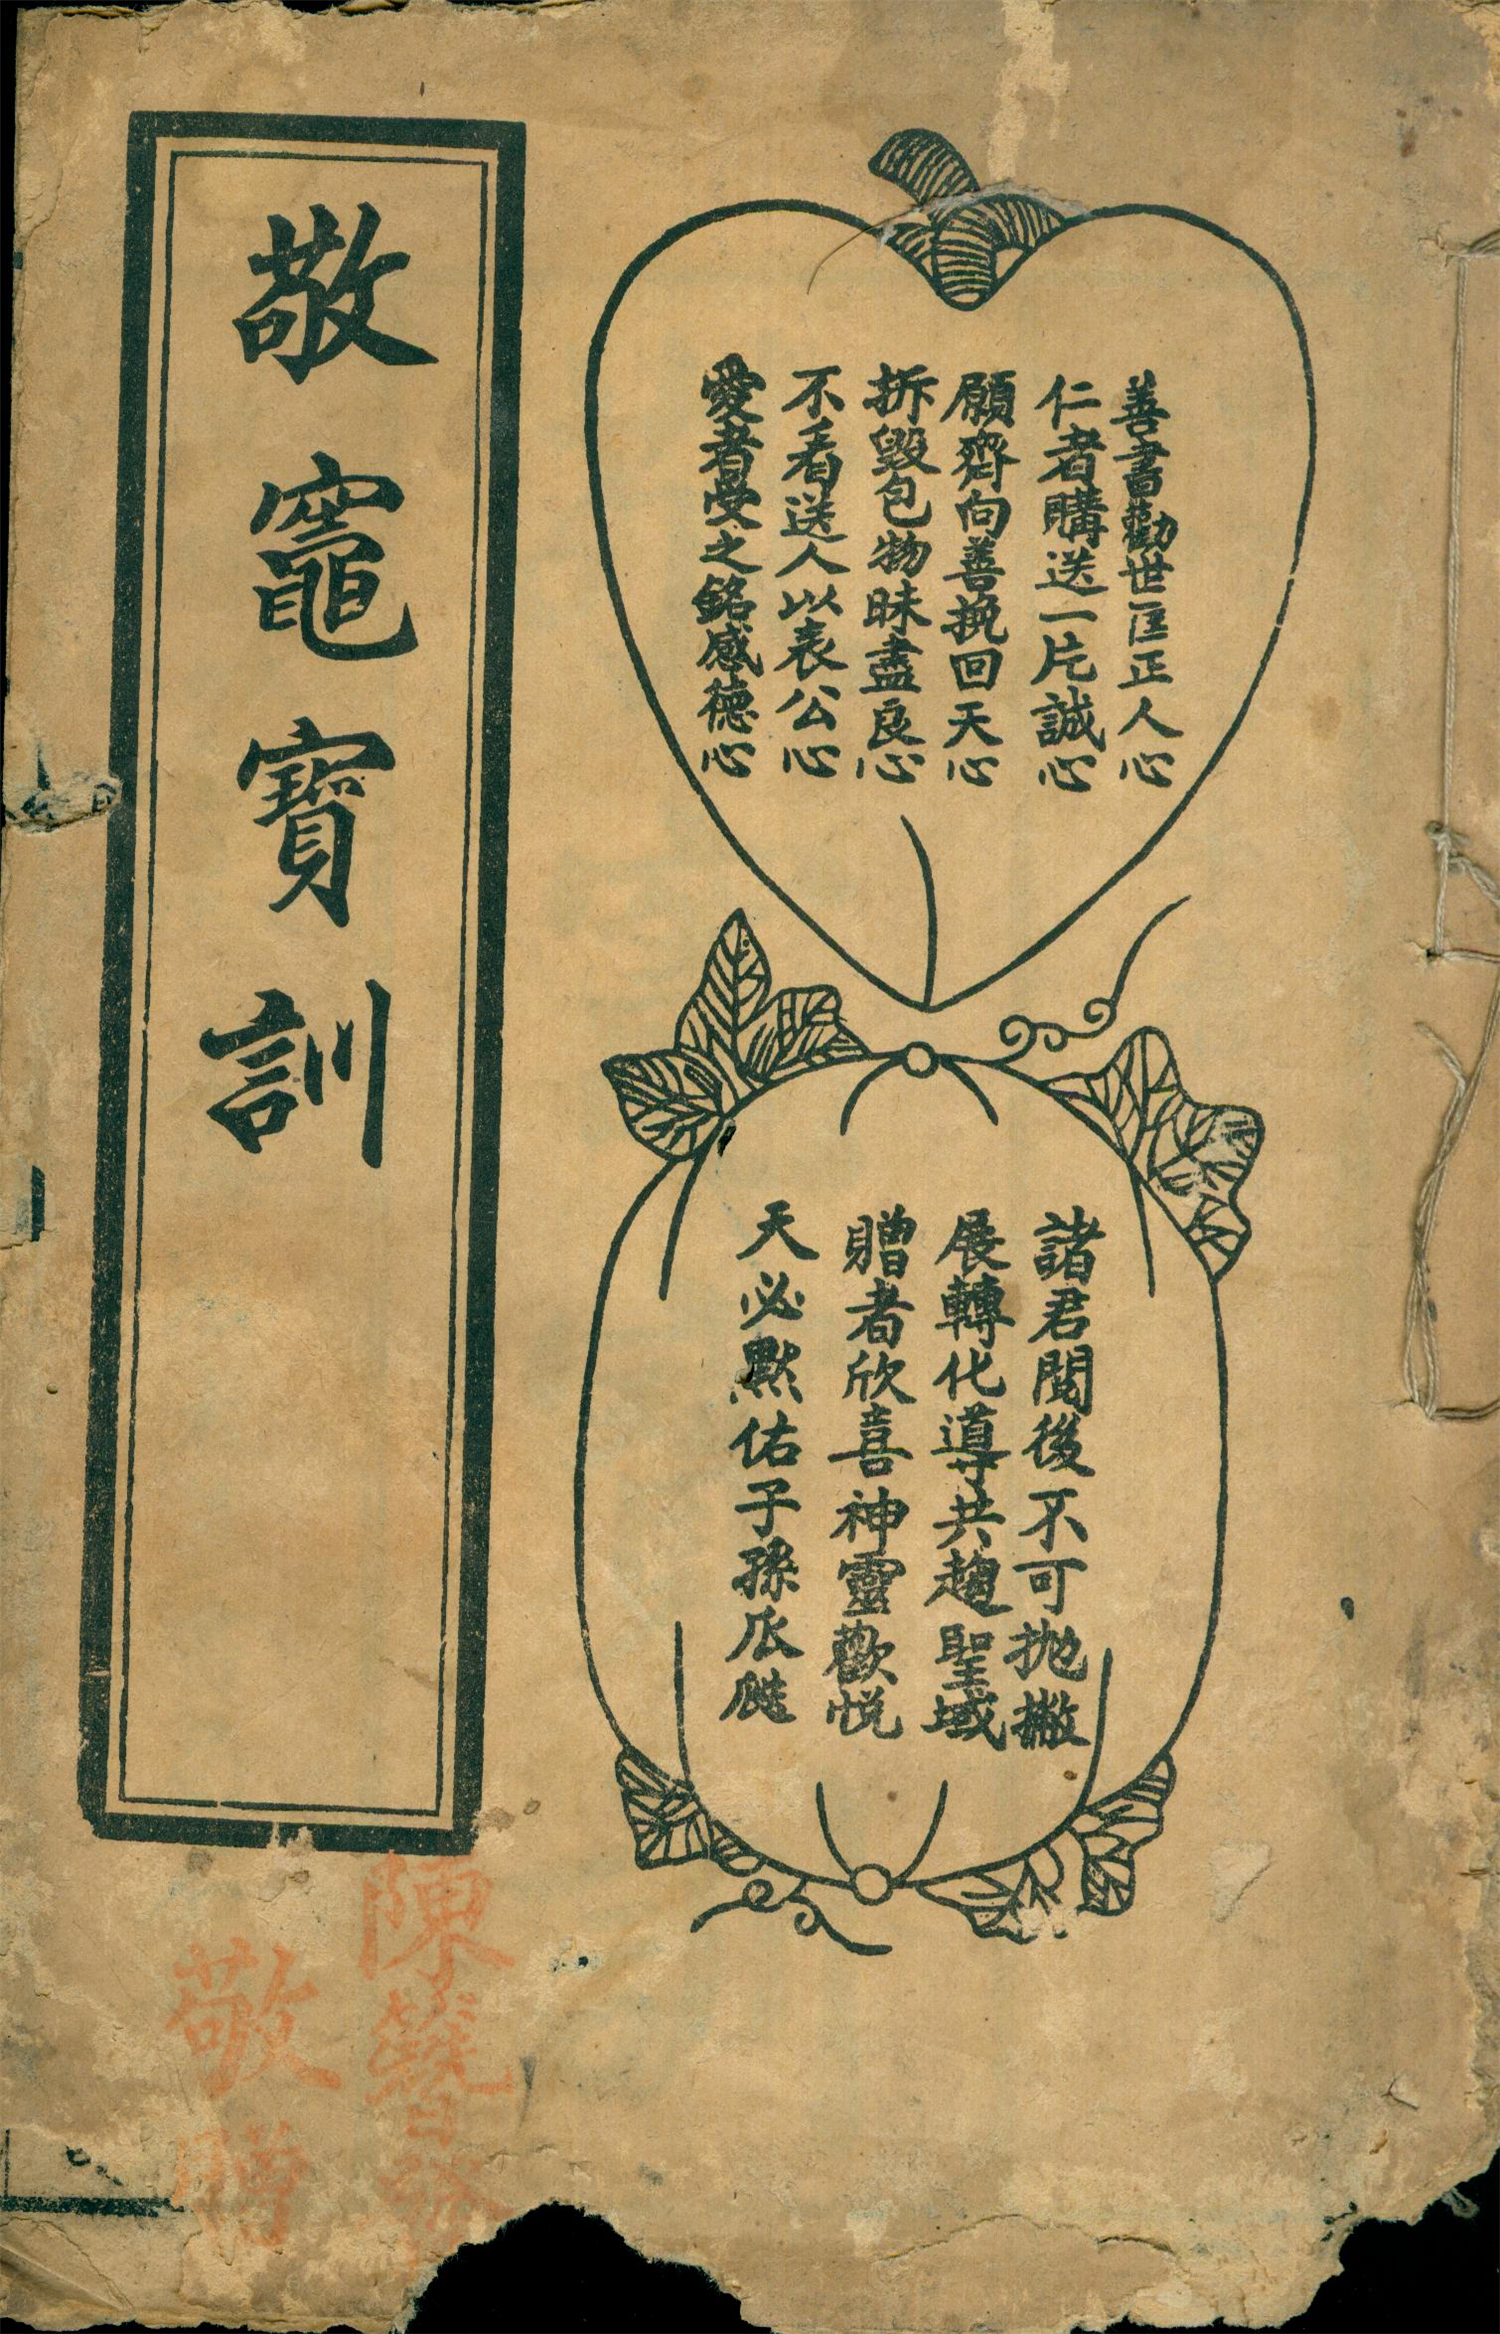 善書勸世匡正人心
仁者購送一片誠心
願齊向善挽回天心
拆毀包物昧盡良心
不看送人以表公心
愛者受之銘感德心
諸君閱後不可拋撇
展轉化導共趨聖域
贈者欣喜神靈歡悅
天必默佑子孫瓜瓞
敬竈寶訓
陳
敬贈